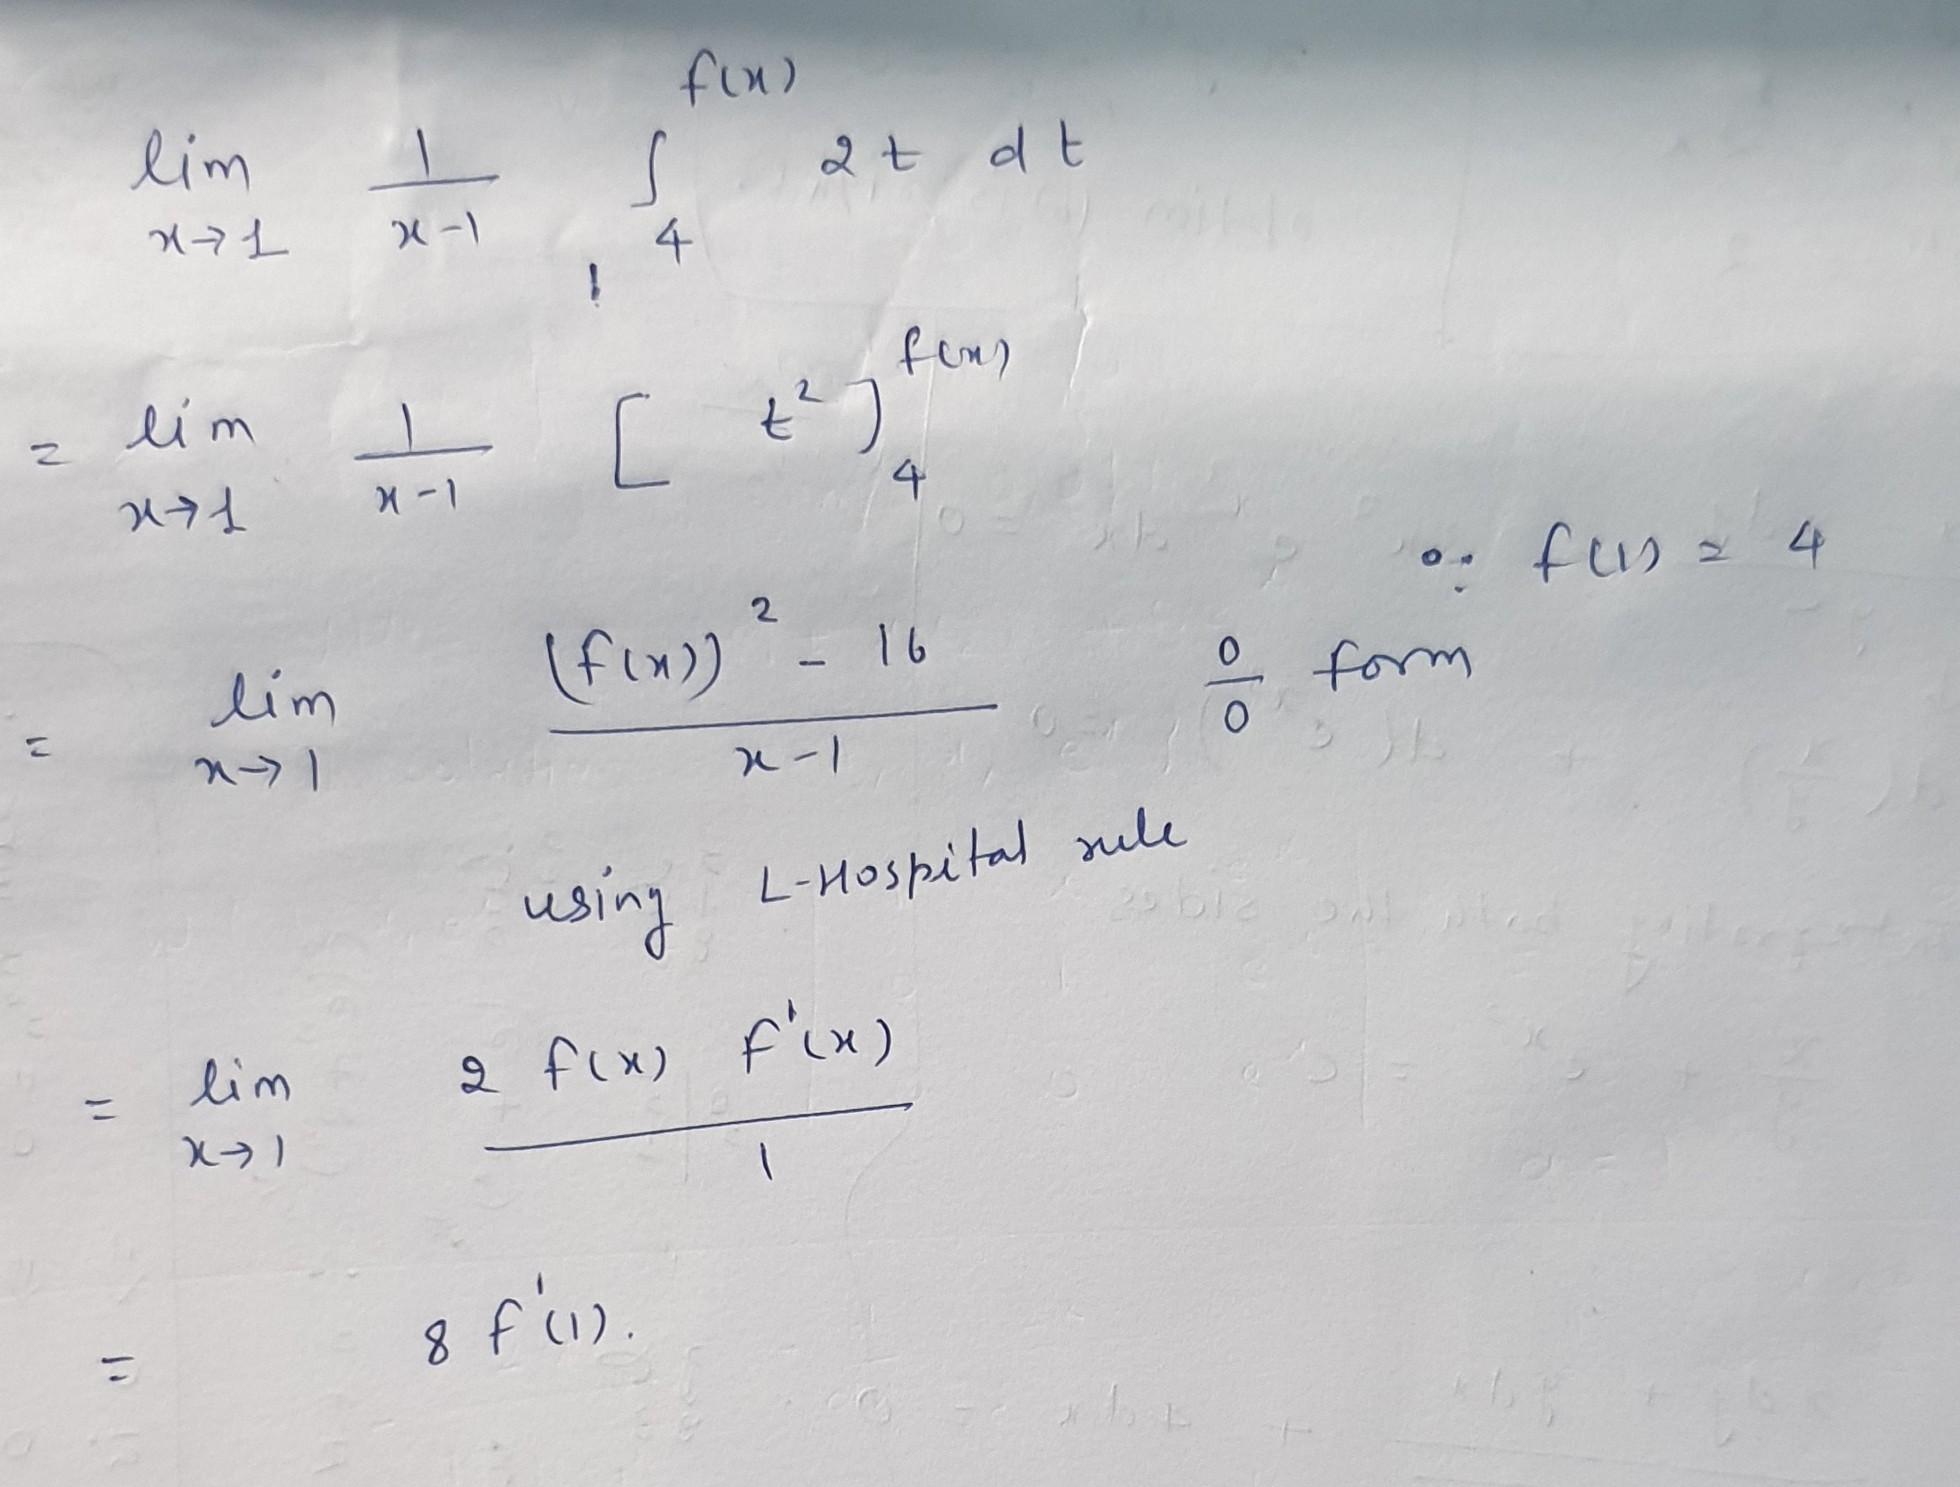 lim x→1 1/(x-1) ∫_4^f(x) 2t dt
= lim x→1 1/(x-1) [t²]_4^f(x)
∵ f(1) = 4
= lim x→1 ((f(x))² - 16)/(x-1) 0/0 form
using L-Hospital rule
= lim x→1 (2 f(x) f'(x))/1
= 8 f'(1).